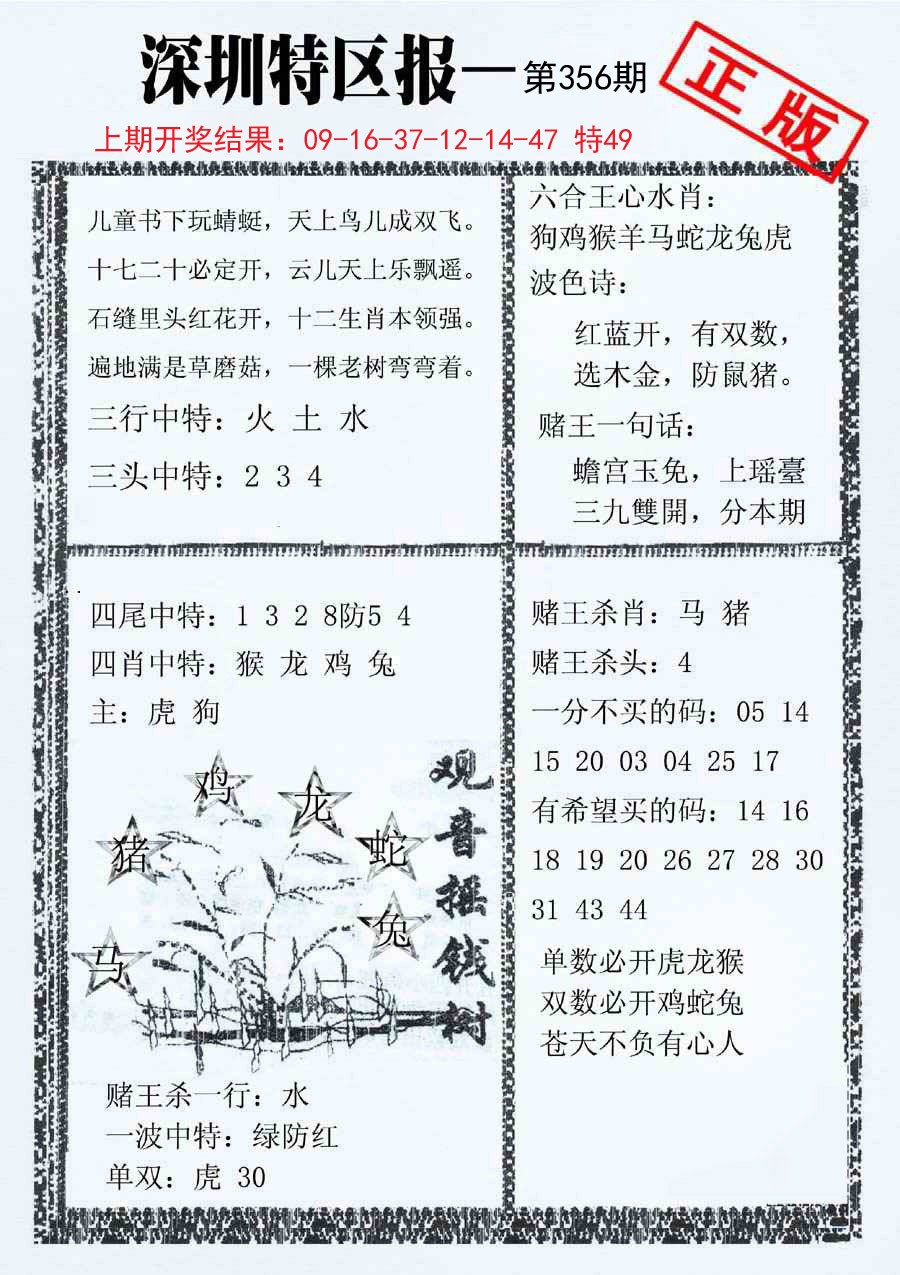 深圳特区报一第356期
正版
上期开奖结果：09-16-37-12-14-47 特49
儿童书下玩蜻蜓，天上鸟儿成双飞。
十七二十必定开，云儿天上乐飘遥。
石缝里头红花开，十二生肖本领强。
遍地满是草磨菇，一棵老树弯弯着。
三行中特：火 土 水
三头中特：2 3 4
六合王心水肖：
狗鸡猴羊马蛇龙兔虎
波色诗：
红蓝开，有双数，
选木金，防鼠猪。
赌王一句话：
蟾宫玉免，上瑶臺
三九雙開，分本期
四尾中特：1 3 2 8防5 4
四肖中特：猴 龙 鸡 兔
主：虎 狗
鸡
龙
猪
蛇
马
兔
观音摇钱树
赌王杀一行：水
一波中特：绿防红
单双：虎 30
赌王杀肖：马 猪
赌王杀头：4
一分不买的码：05 14
15 20 03 04 25 17
有希望买的码：14 16
18 19 20 26 27 28 30
31 43 44
单数必开虎龙猴
双数必开鸡蛇兔
苍天不负有心人